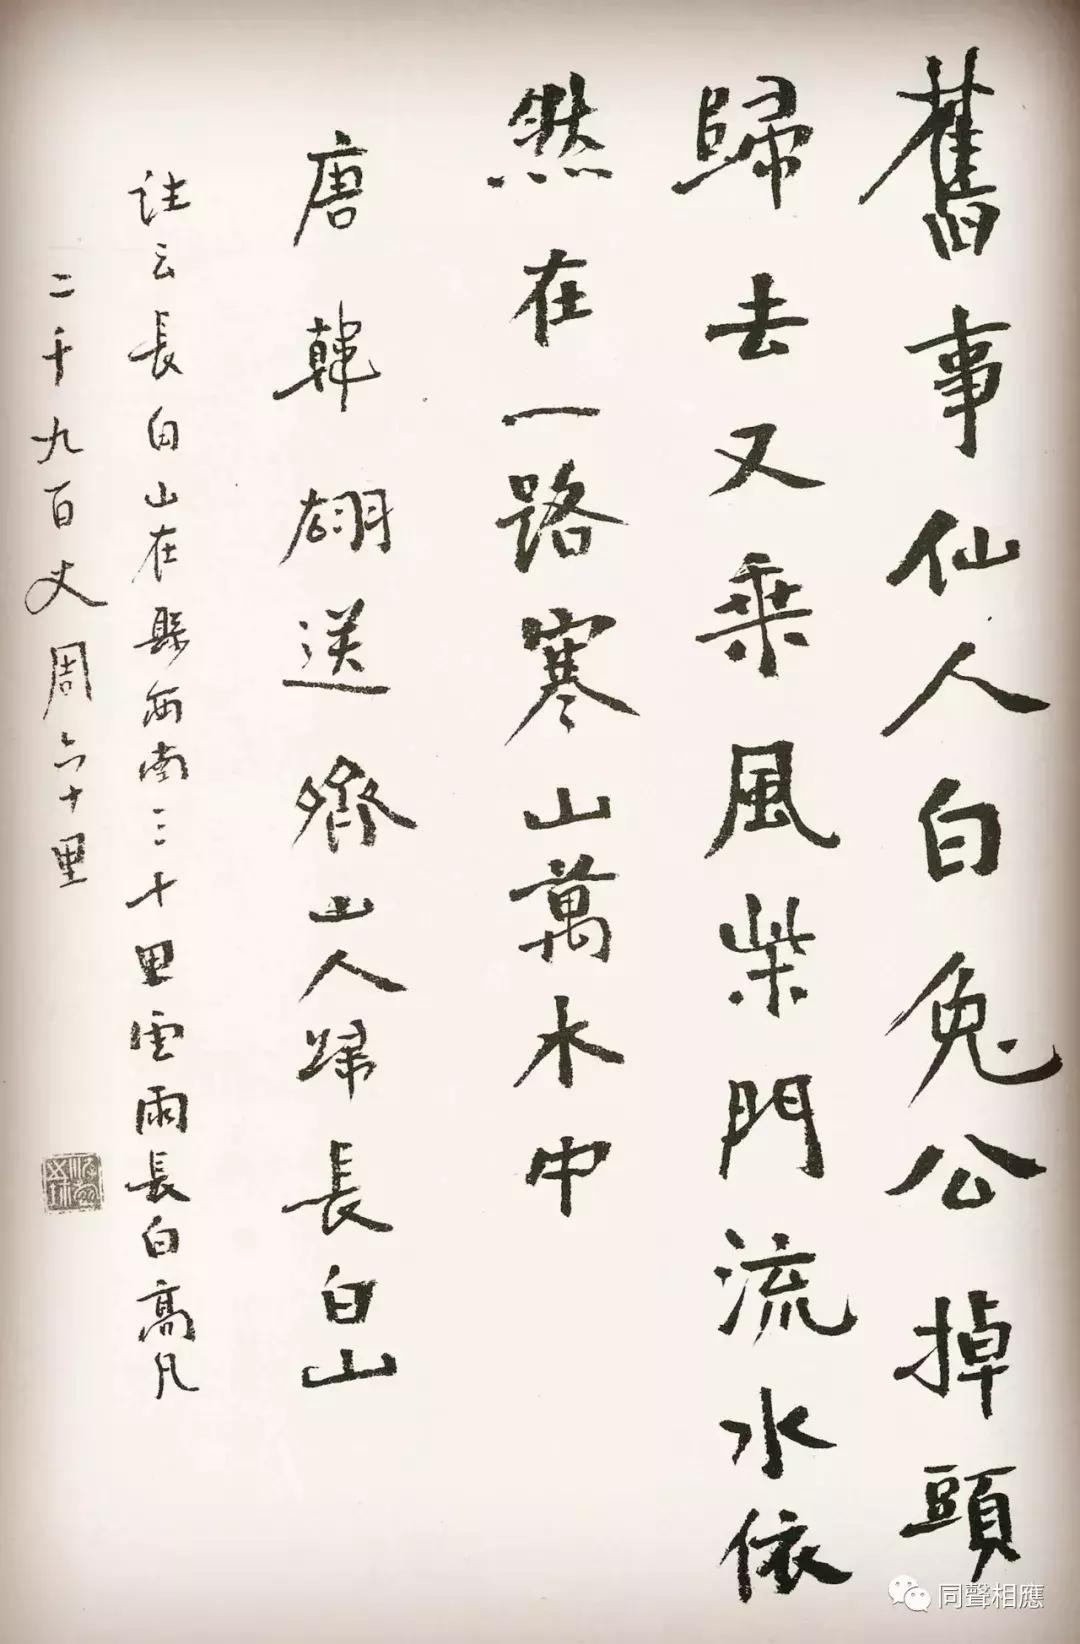 舊事仙人白兔公掉頭
歸去又乗風柴門流水依
然在一路寒山萬木中
唐韓翃送齊山人歸長白山
註云長白山在縣西南三十里雲雨長白高凡
二千九百丈周六十里
同聲相應